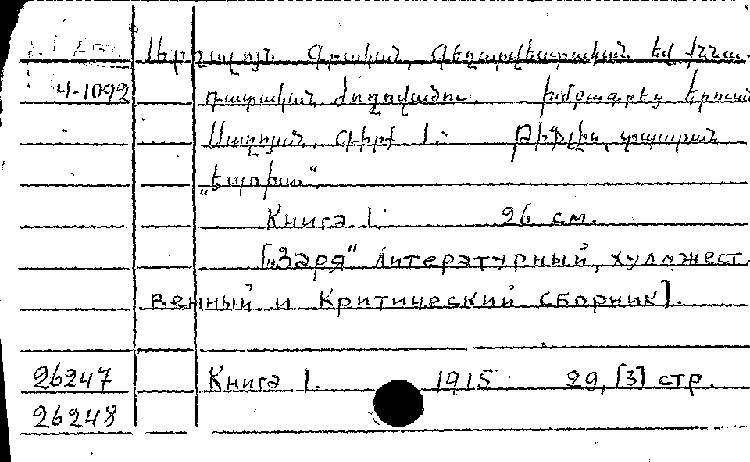 գրական, գեղարվեստական եվ քննա-
Ч-1092 դատական ժողովածու. խմբագրեց Երուանդ
գիրք 1. Թիֆլիս, տպարան
Книга 1. 26 см.
[„Заря" литературный, художест
венный и критический сборник].
26247 Книга 1. 1915 29, [3] стр.
26248